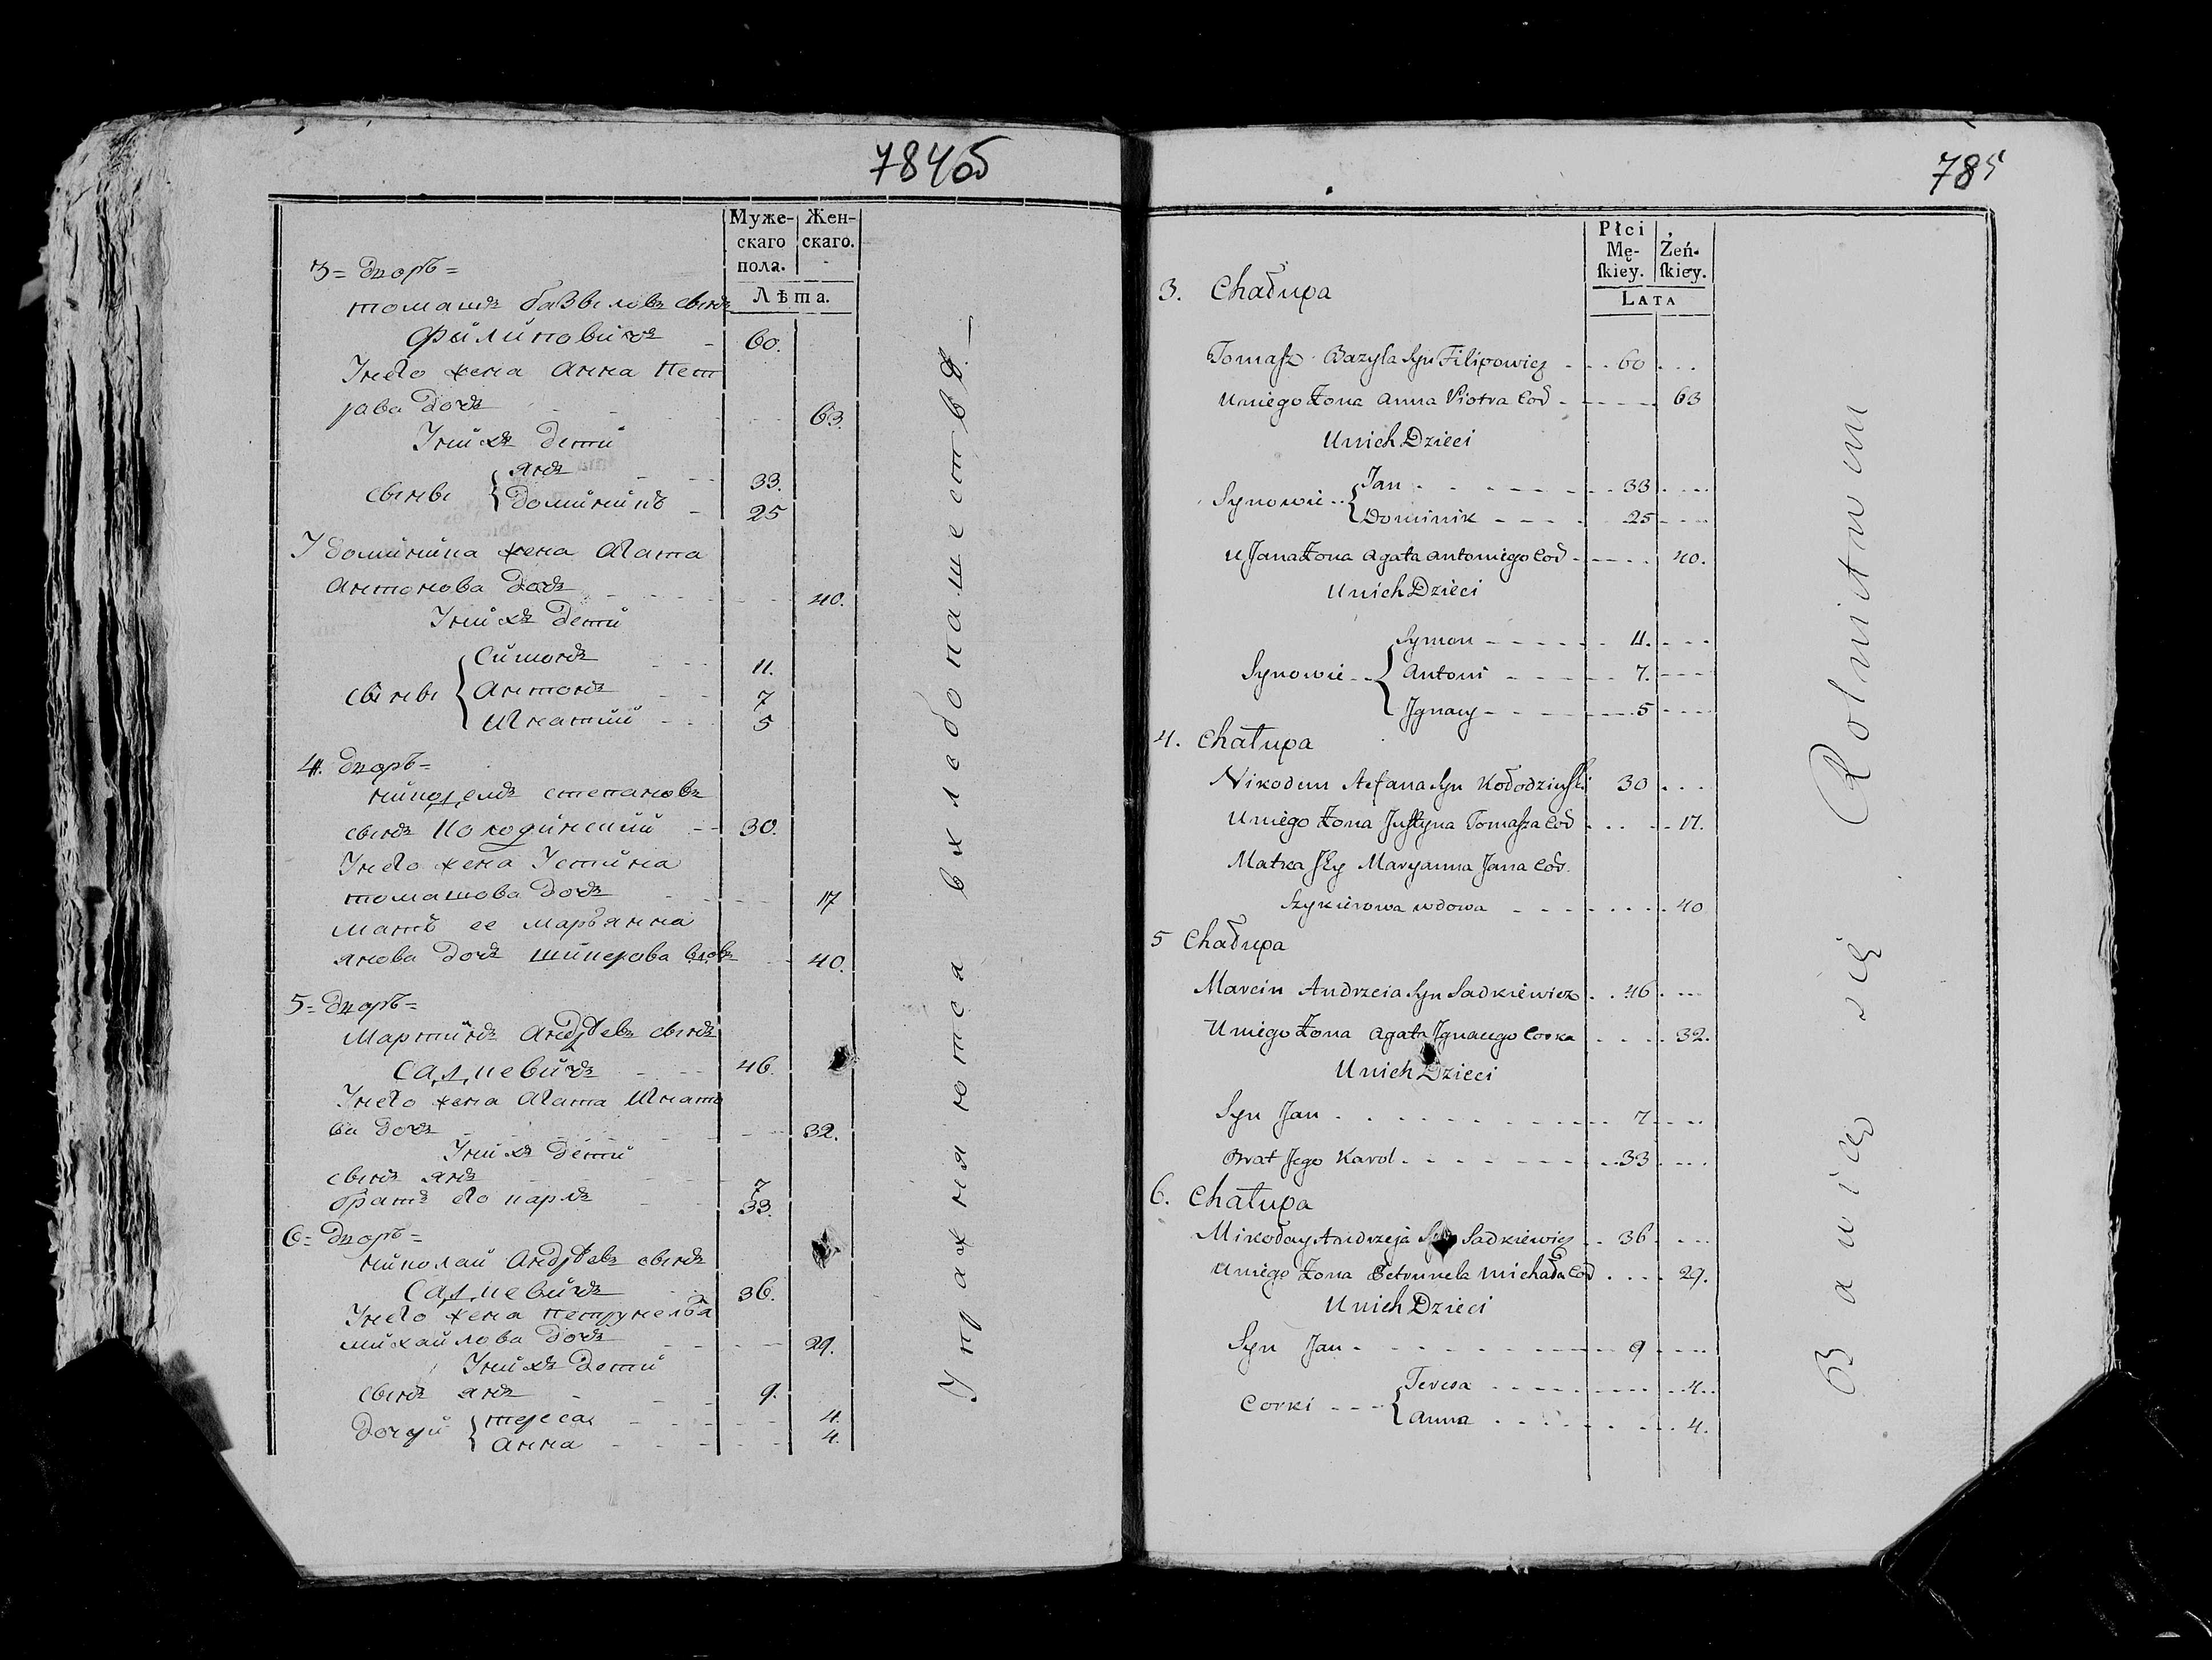 784об
Муже-
скаго
пола.
Жен-
скаго.
Лѣта.
3 = Дворъ =
томашъ базыловъ сынъ
Филиповичъ - 60.
У него жена Анна Пет
рова дочь 63.
У нихъ дети
сыны { янъ 33.
доминикъ 25
У доминика жена агата
антонова дочь 40.
У нихъ дети
сыны { Симонъ 11.
Антонъ 7
Игнатий 5
4. Дворъ =
никодемъ степановъ
сынъ Колодзинский 30.
У него жена Устина
томашова дочь 17
мать ее марьянна
янова дочь шикерова вдова 40.
5 = Дворъ =
Мартинъ андреевъ сынъ
Садкевичъ 46.
У него жена агата Игнато
ва дочь 32.
У нихъ дети
сынъ янъ 7
братъ его карлъ 33.
6 = Дворъ =
николай андреевъ сынъ
Садкевичъ 36.
У него жена петрунеля
михайлова дочь 29.
У нихъ дети
сынъ янъ 9.
дочери { тереса 4.
анна 4.
Упражняются в хлебопашестве. —
785
Płci
Mę-
ſkiey.
Żeń-
ſkiey.
LATA
3. Chałupa
Tomasz Bazyla Syn Filipowicz 60
U niego Żona Anna Piotra Cod 63
U nich Dzieci
Synowie { Jan 33
Dominik 25
U Jana Żona Agata Antoniego Cod 40.
U nich Dzieci
Synowie { Symon 11.
Antoni 7.
Jgnacy 5
4. Chałupa
Nikodem Stefana Syn Kołodzinski 30
U niego Żona Justyna Tomasza Cod 17.
Matka Jey Maryanna Jana Cod.
Szykierowa wdowa 40
5 Chałupa
Marcin Andrzeia Syn Sadkiewicz 46
U niego Żona Agata Jgnacego Corka 32.
U nich Dzieci
Syn Jan 7
Brat Jego Karol 33
6. Chałupa
Mikołay Andrzeja Syn Sadkiewicz 36
U niego Żona Petrunela Michała Cod 29.
U nich Dzieci
Syn Jan 9
Corki { Teresa 4.
Anna 4.
Bawią się Rolnictwem